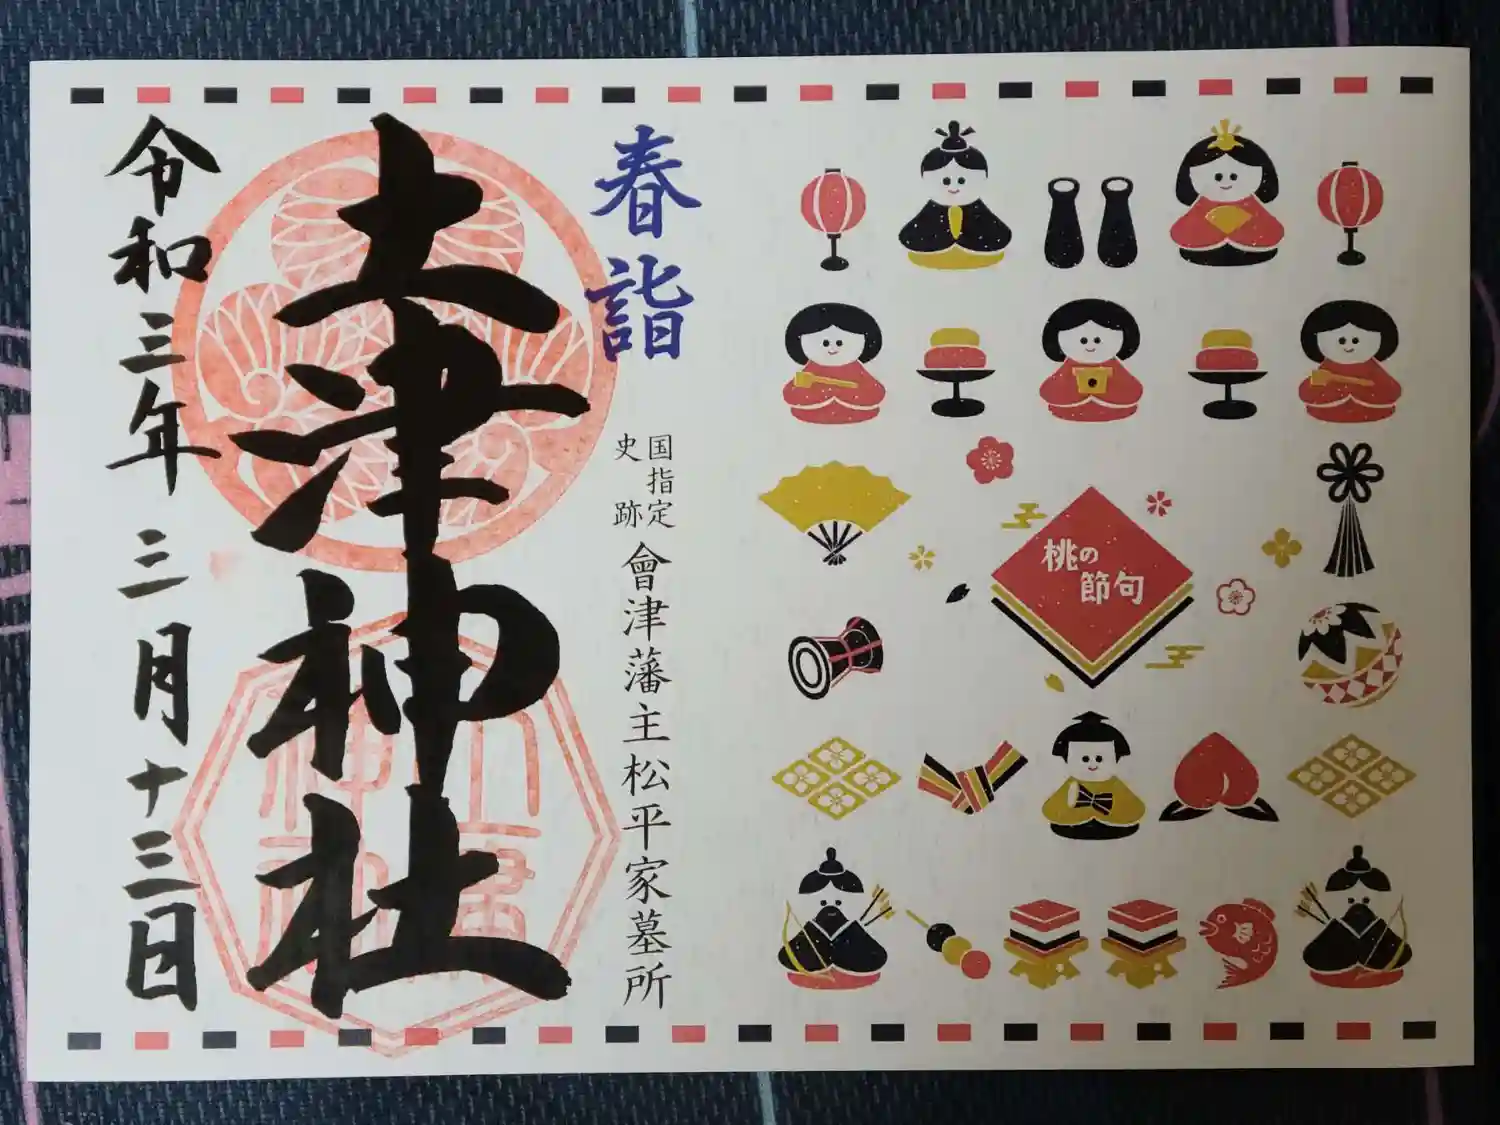 桃の
節句
春詣
国指定
史跡
會津藩主松平家墓所
土津神社
令和三年三月十三日